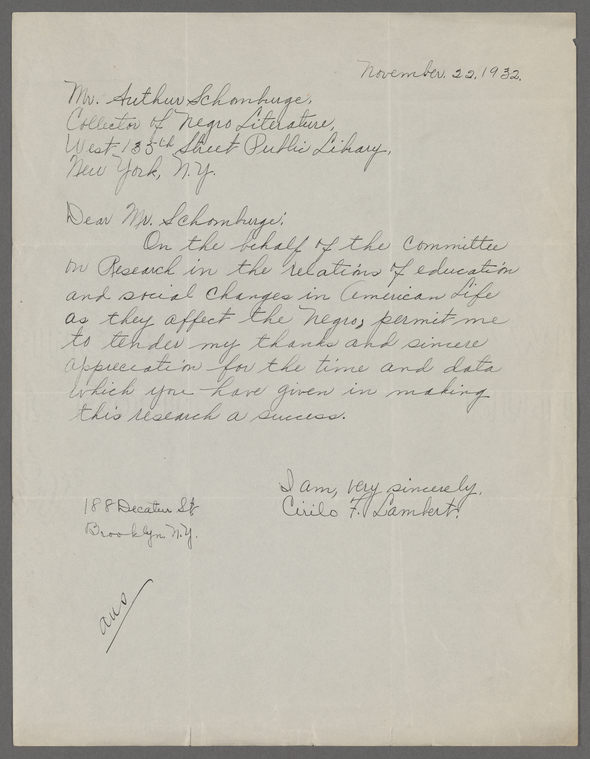 November. 22, 1932.
Mr. Authur Schomburge,
Collector of Negro Literature,
West 135th Street Public Library,
New York, N.Y.
Dear Mr. Schomburge:
On the behalf of the committee
on Research in the relations of education
and social changes in American Life
as they affect the Negro, permit me
to tender my thanks and sincere
appreciation for the time and data
which you have given in making
this research a success.
I am, very sincerely,
Cirilo F. Lambert.
188 Decatur St
Brooklyn N.Y.
ans